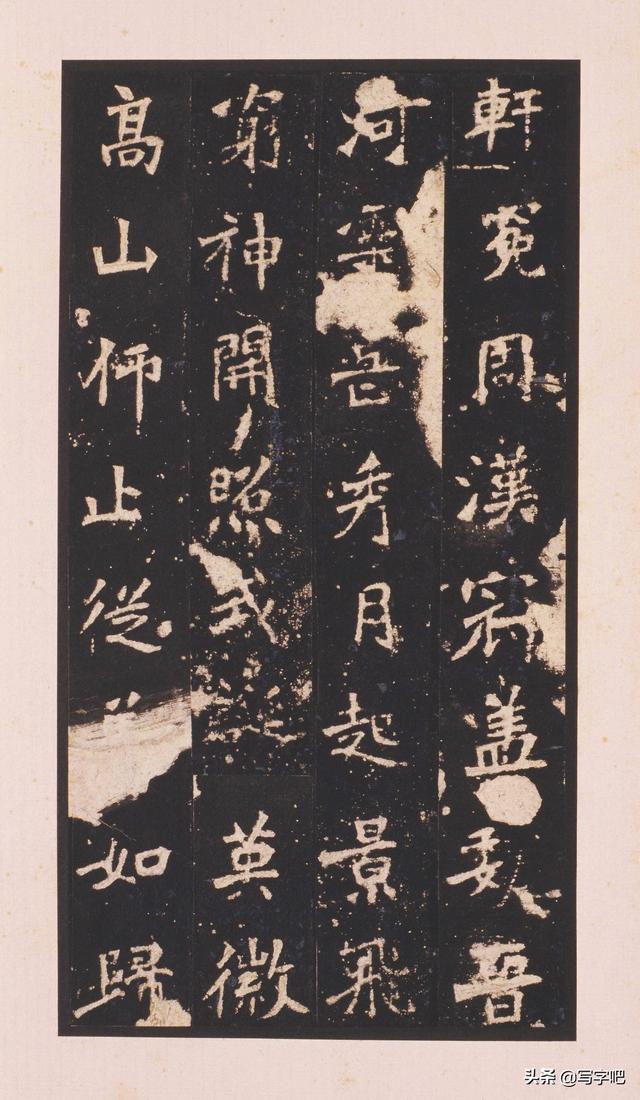 軒冕周漢冠盖魏晉
河靈岳秀月起景飛
窮神開照式誕英徽
高山仰止從如歸
头条 @写字吧